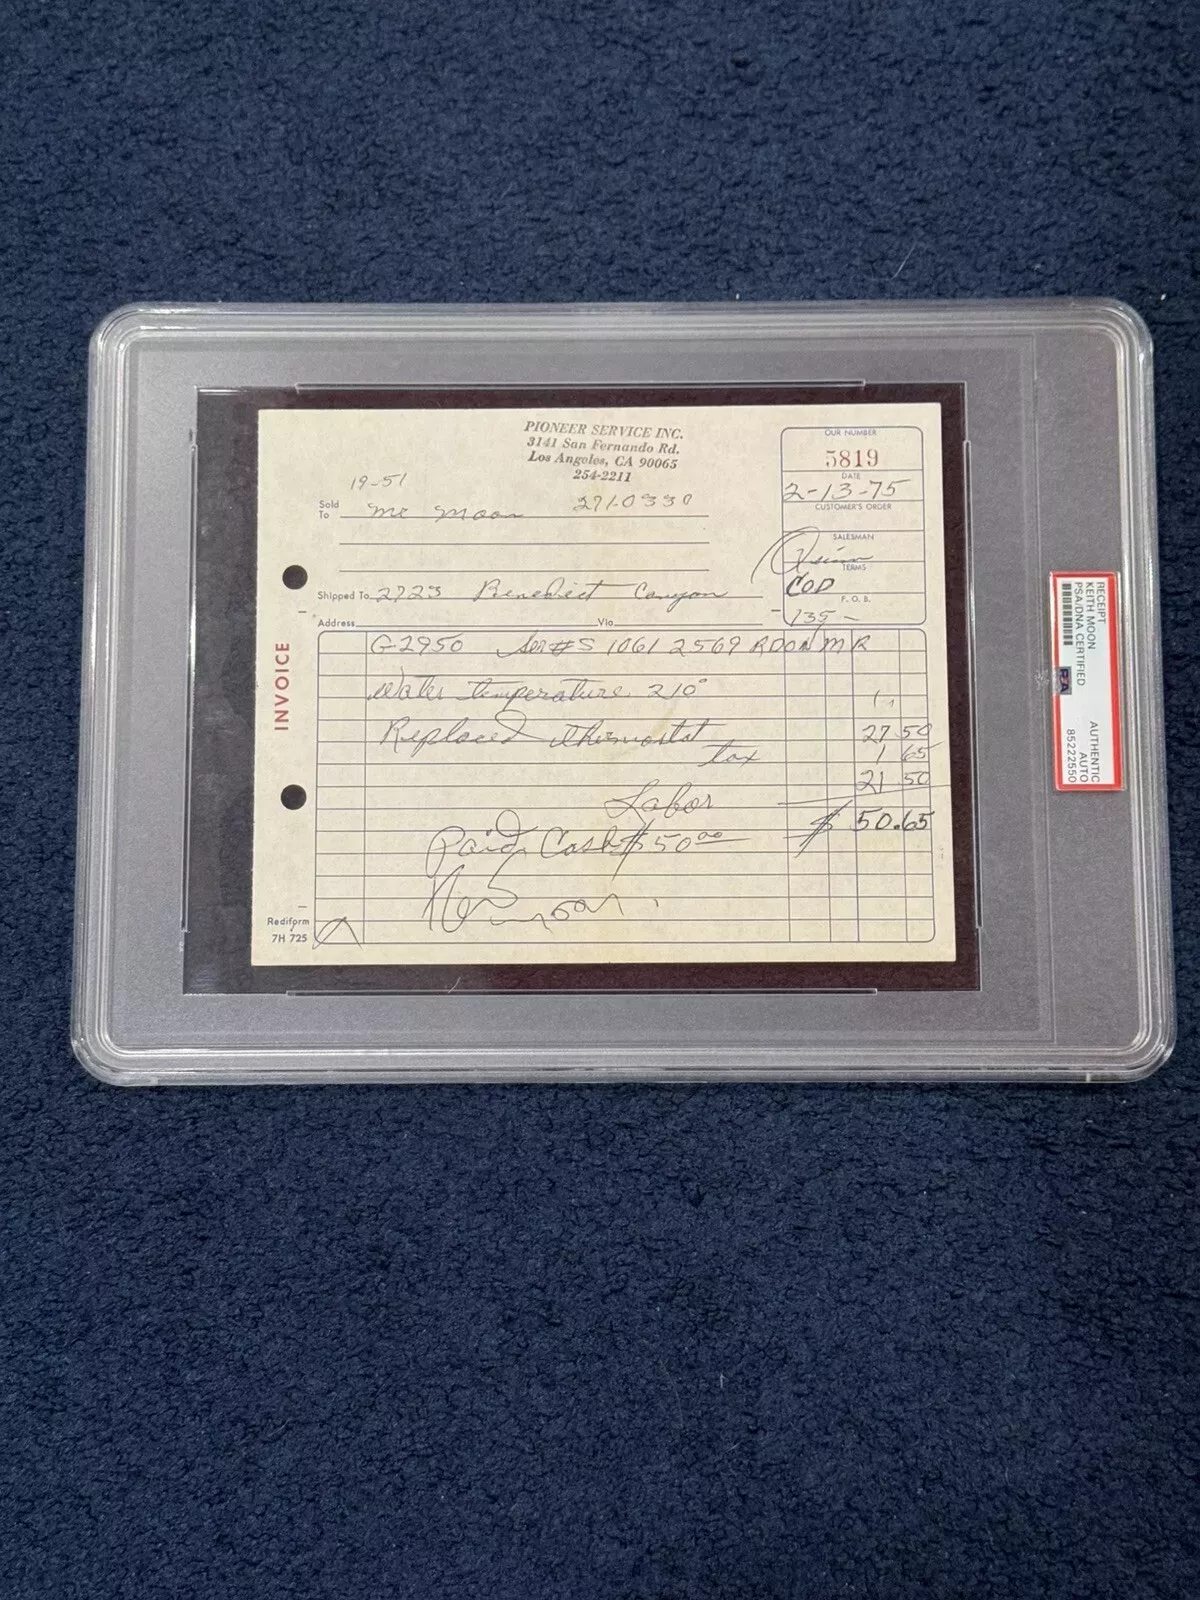 PIONEER SERVICE INC.
3141 San Fernando Rd.
Los Angeles, CA 90065
254-2211
OUR NUMBER
5819
DATE
2-13-75
CUSTOMER'S ORDER
SALESMAN
Quinn
TERMS
COD
F. O. B.
135-
19-51
Sold To Mr Moon 271-0330
Shipped To 2723 Benedict Canyon
Address Via
INVOICE
G-2950 Ser#S 1061 2569 RDONMR
Water temperature 210°
Replaced thermostat 27 50
tax 1 65
21 50
Labor
$ 50.65
Paid Cash $50.00
Rediform
7H 725
RECEIPT
KEITH MOON
PSA/DNA CERTIFIED
PSA
AUTHENTIC
AUTO
85222550